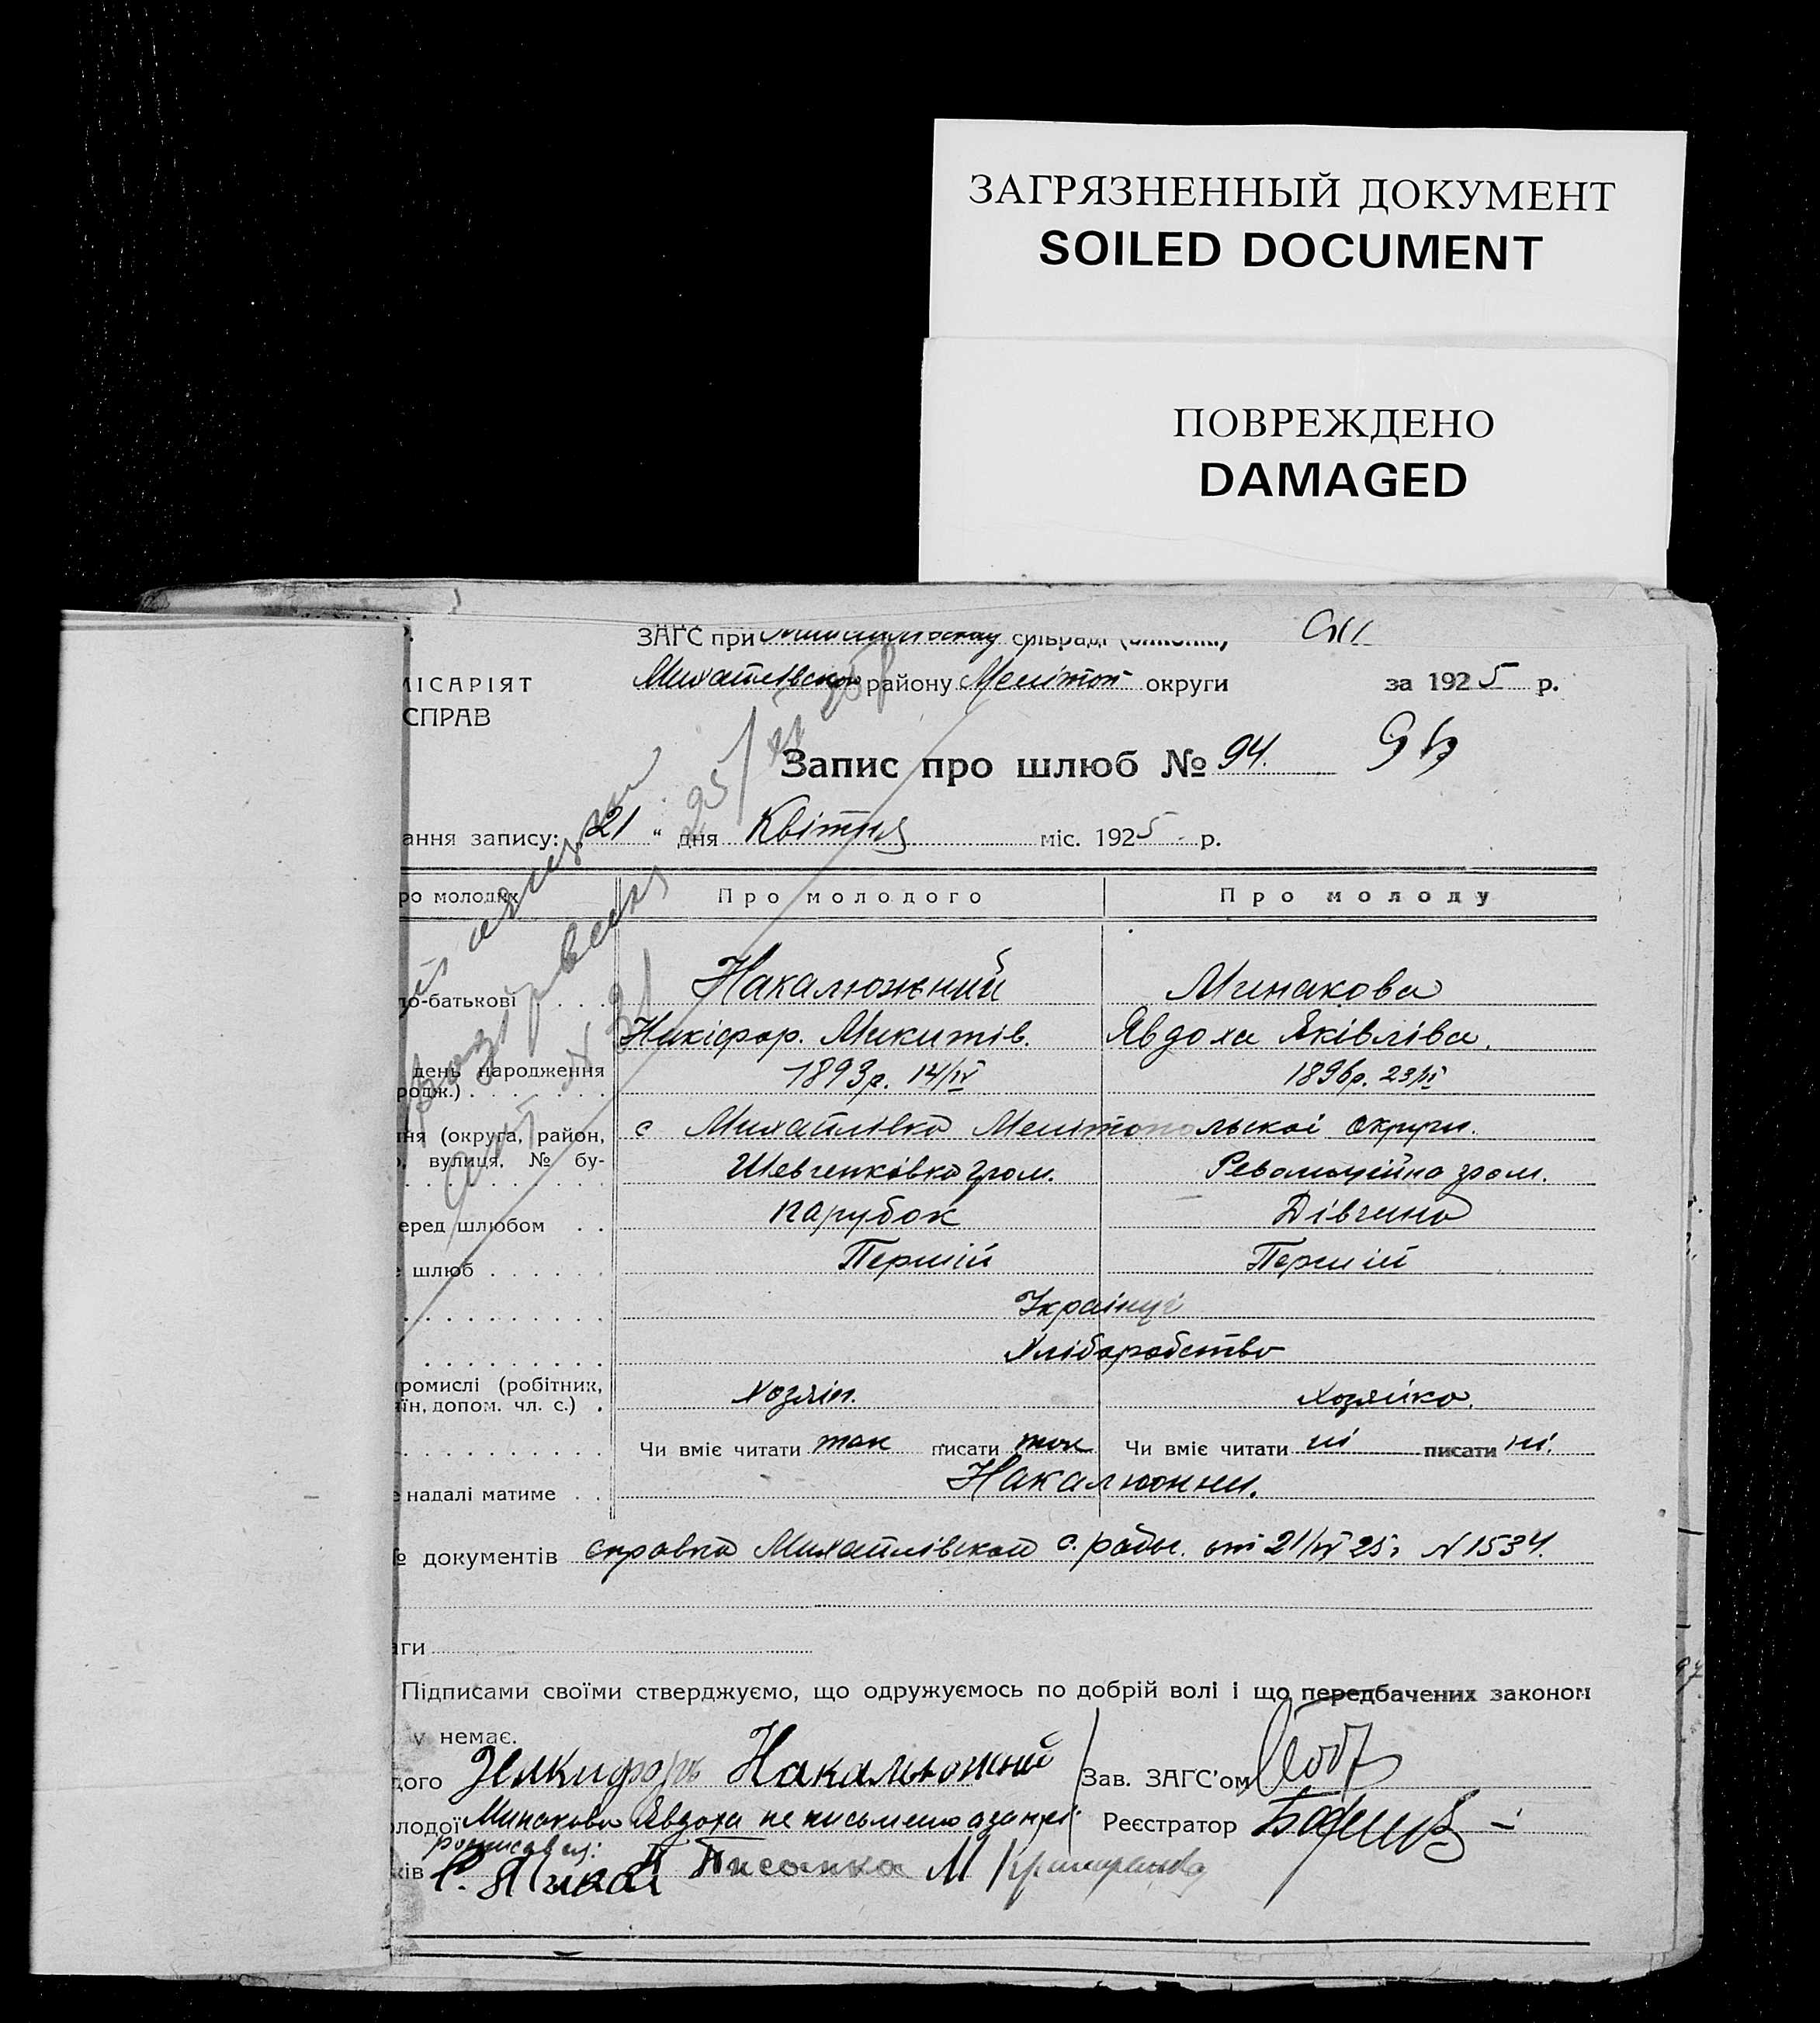 ЗАГРЯЗНЕННЫЙ ДОКУМЕНТ
SOILED DOCUMENT
ПОВРЕЖДЕНО
DAMAGED
ЗАГС при сільраді
МІСАРІЯТ
СПРАВ
Михайлівсков району Меліtoп округи за 1925 р.
Запис про шлюб № 94.
ання запису: „21“ дня Квітня міс. 1925 р.
ро молодих Про молодого Про молоду
по-батькові
Накалюжний Минакова
Никіфор. Микитів. Явдоха Яківліва.
день народження
родж.)
1893р. 14/IV 1896р. 23/II
ння (округа, район,
с Михайлівка Мелітопольскоі округи.
вулиця, № бу-
Шевченківка гром. Революційна гром.
еред шлюбом парубок Дівчина
шлюб Перший Перший
Українці
Хліборобство
промислі (робітник,
їн, допом. чл. с.)
Хозяін. Хозяйка.
Чи вміє читати так писати так Чи вміє читати ні писати ні.
надалі матиме Накалюжни.
№ документів справка Михайлівской с. рады. от 21/IV 25г N 1534.
аги
Підписами своїми стверджуємо, що одружуємось по добрій волі і що передбачених законом
у немає.
дого Накалюжний Зав. ЗАГС’ом
лодої Минакова Явдоха не письмена за неі Реєстратор
росписався:
ків П Писанка М